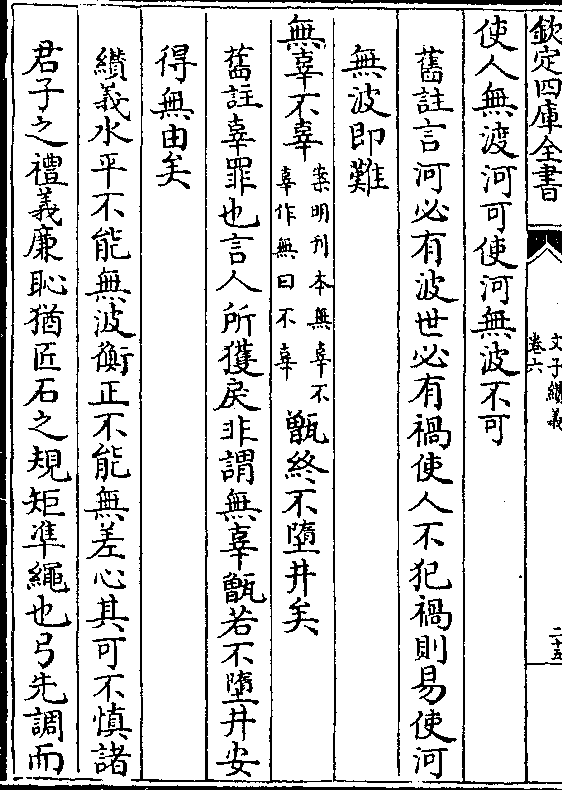 欽定四庫全書
文子纘義
卷六
二十五
使人無渡河可使河無波不可
舊註言河必有波世必有禍使人不犯禍則易使河
無波即難
無辜不辜
案明刊本無辜不
辜作無曰不辜
甑終不墮井矣
舊註辜罪也言人所獲戾非謂無辜甑若不墮井安
得無由矣
纘義水平不能無波衡正不能無差心其可不慎諸
君子之禮義廉恥猶匠石之規矩準繩也弓先調而